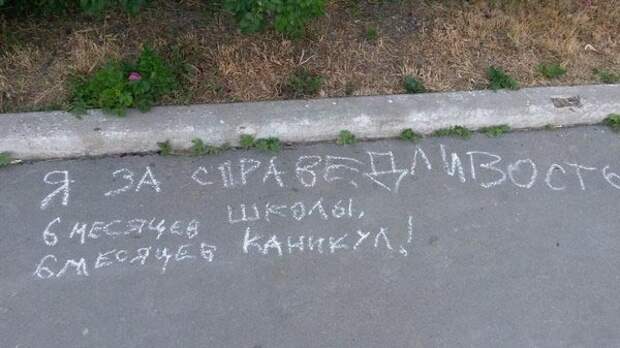 Я ЗА СПРАВЕДЛИВОСТЬ
6 МЕСЯЦЕВ ШКОЛЫ,
6 МЕСЯЦЕВ КАНИКУЛ!